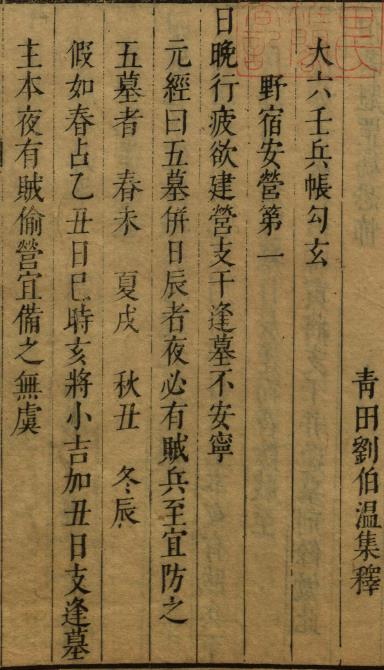 青田劉伯温集釋
大六壬兵帳勾玄
野宿安營第一
日晚行疲欲建營支干逢墓不安寧
元經曰五墓併日辰者夜必有賊兵至宜防之
五墓者 春未 夏戌 秋丑 冬辰
假如春占乙丑日巳時亥將小吉加丑日支逢墓
主本夜有賊偷營宜備之無虞